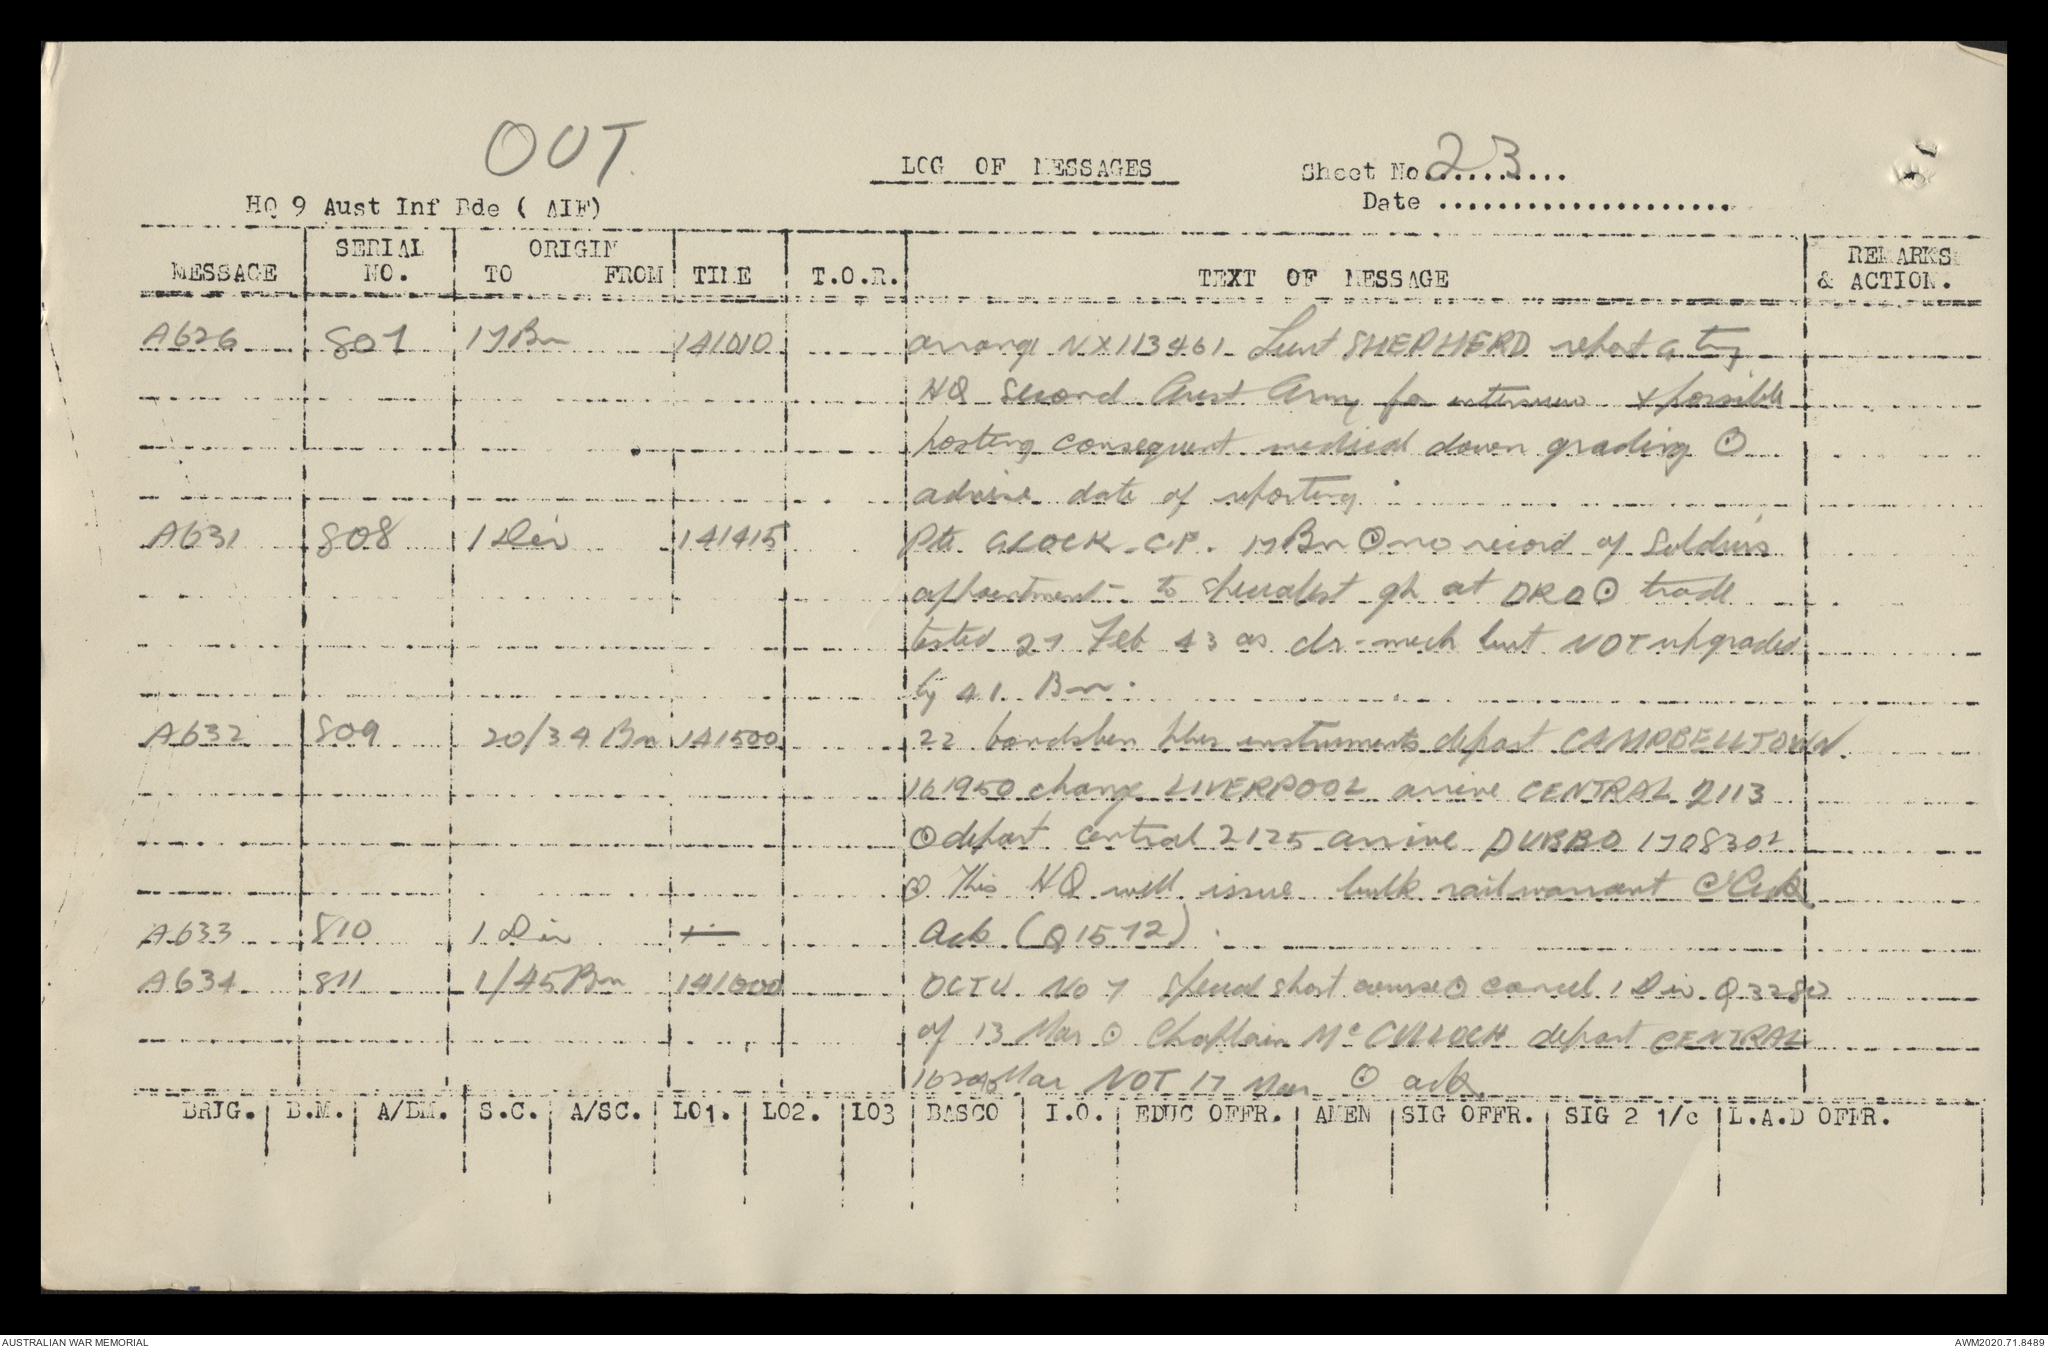 OUT.
LOG OF MESSAGES
Sheet No 23
HQ 9 Aust Inf Bde ( AIF)
Date
MESSAGE SERIAL NO. ORIGIN TO FROM TIME T.O.R. TEXT OF MESSAGE REMARKS & ACTION.
A626 807 17 Bn 141010 arrange NX113461 Lieut SHEPHERD report G trg
HQ Second Aust Army for interview & possible
posting consequent medical down grading ⊙
advise date of reporting
A631 808 1 Div 141415 Pte GLOCK C.P. 17 Bn ⊙ no record of Soldiers
appointment to specialist gp at DRO ⊙ trade
tested 27 Feb 43 as dr-mech but NOT upgraded
by 41 Bn.
A632 809 20/34 Bn 141500 22 bandsmen plus instruments depart CAMPBELLTOWN.
161950 change LIVERPOOL arrive CENTRAL 2113
⊙ depart central 2125 arrive DUBBO 170830
⊙ This HQ will issue bulk rail warrant ⊙ Ack
A633 810 1 Div Ack (Q1572)
A634 811 1/45 Bn 141600 OCTU No 7 special short course ⊙ cancel 1 Div Q3280
of 13 Mar ⊙ Chaplain McCULLOCH depart CENTRAL
Mar NOT 17 Mar ⊙ ack
BRIG. B.M. A/BM. S.C. A/SC. LO1. LO2. LO3 BASCO I.O. EDUC OFFR. AMEN SIG OFFR. SIG 2 1/c L.A.D OFFR.
AUSTRALIAN WAR MEMORIAL
AWM2020.71.8489